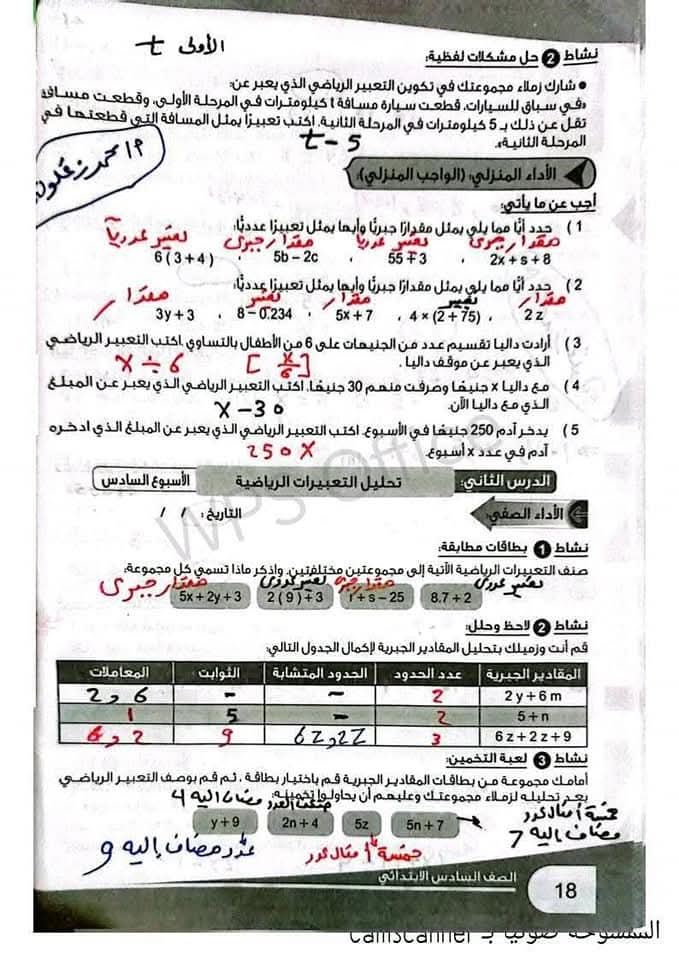 الأولى t
نشاط 2 حل مشكلات لفظية:
● شارك زملاء مجموعتك في تكوين التعبير الرياضي الذي يعبر عن:
«في سباق للسيارات، قطعت سيارة مسافة t كيلومترات في المرحلة الأولى، وقطعت مسافة
تقل عن ذلك بـ 5 كيلومترات في المرحلة الثانية. اكتب تعبيرًا يمثل المسافة التي قطعتها في
المرحلة الثانية».
t - 5
محمد زغلول
الأداء المنزلي: (الواجب المنزلي):
أجب عن ما يأتي:
1 ) حدد أيًّا مما يلي يمثل مقدارًا جبريًّا وأيها يمثل تعبيرًا عدديًّا:
مقدار جبرى تعبير عدديا مقدار جبرى تعبير عدديا
2x + s + 8 ، 55 ÷ 3 ، 5b – 2c ، 6 ( 3 + 4 )
2 ) حدد أيًّا مما يلي يمثل مقدارًا جبريًّا وأيها يمثل تعبيرًا عدديًّا:
مقدار تعبير مقدار تعبير مقدار
2 z ، 4 × (2 + 75) ، 5x + 7 ، 8 – 0.234 ، 3y + 3
3 ) أرادت داليا تقسيم عدد من الجنيهات على 6 من الأطفال بالتساوي. اكتب التعبير الرياضي
الذي يعبر عن موقف داليا . [ x/6 ] x ÷ 6
4 ) مع داليا x جنيهًا وصرفت منهم 30 جنيهًا. اكتب التعبير الرياضي الذي يعبر عن المبلغ
الذي مع داليا الآن. x – 30
5 ) يدخر آدم 250 جنيهًا في الأسبوع. اكتب التعبير الرياضي الذي يعبر عن المبلغ الذي ادخره
آدم في عدد x أسبوع. 250 x
الدرس الثاني: تحليل التعبيرات الرياضية الأسبوع السادس
الأداء الصفي: التاريخ: / /
WPS Office
نشاط 1 بطاقات مطابقة:
صنف التعبيرات الرياضية الآتية إلى مجموعتين مختلفتين. واذكر ماذا تسمي كل مجموعة:
تعبير عددى مقدار جبرى تعبير عددى مقدار جبرى
8.7 ÷ 2 r + s – 25 2 ( 9 ) ÷ 3 5x + 2y + 3
نشاط 2 لاحظ وحلل:
قم أنت وزميلك بتحليل المقادير الجبرية لإكمال الجدول التالي:
المقادير الجبرية عدد الحدود الحدود المتشابة الثوابت المعاملات
2 y + 6 m 2 - - 6 و 2
5 + n 2 - 5 1
6 z + 2 z + 9 3 2z و 6z 9 2 و 6
نشاط 3 لعبة التخمين:
أمامك مجموعة من بطاقات المقادير الجبرية قم باختيار بطاقة ، ثم قم بوصف التعبير الرياضي
بعد تحليله لزملاء مجموعتك وعليهم أن يحاولوا تخمينه:
ضعف العدد مضاف اليه 4
خمسة أمثال عدد
مضاف اليه 7
5n + 7 5z 2n + 4 y + 9
خمسة أمثال عدد
عدد مضاف إليه 9
الصف السادس الابتدائي
18
الممسوحة ضوئيا بـ CamScanner